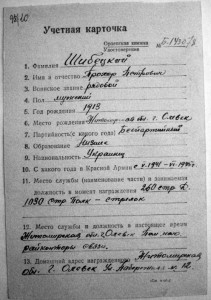 Учетная карточка
Орденская книжка
№ Б-
1. Фамилия Шибецкий
2. Имя и отчество Петрович
3. Воинское звание рядовой
4. Пол мужской
5. Год рождения 1913
6. Место рождения Житомир. обл. г. Олевск
7. Партийность (с какого года) Беспартийный
8. Образование Низшее
9. Национальность Украинец
10. С какого года в Красной Армии с 1941 1945 г.
11. Место службы (наименование части) и занимаемая
должность в момент награждения 260 стр. д.
1030 Стр Полк - стрелок
12. Место службы и должность в настоящее время
Житомирская обл. г Олевск
райконторы связи.
13. Домашний адрес награжденного Житомирская
обл. г. Олевск № 12.